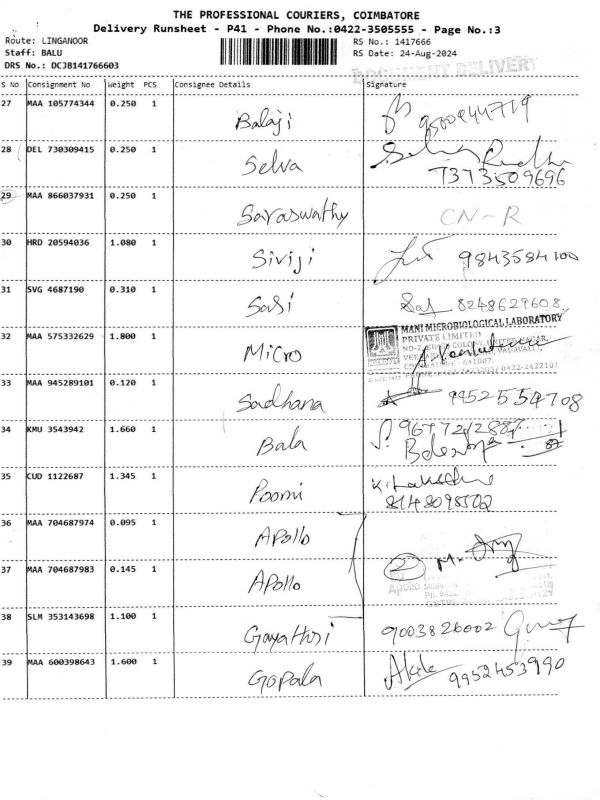 THE PROFESSIONAL COURIERS, COIMBATORE
Delivery Runsheet - P41 - Phone No.:0422-3505555 - Page No.:3
Route: LINGANOOR RS No.: 1417666
Staff: BALU RS Date: 24-Aug-2024
DRS No.: DCJB141766603
DOCUMENT DELIVERY
S No Consignment No Weight PCS Consignee Details Signature
27 MAA 105774344 0.250 1 Balaji 9500944719
28 DEL 730309415 0.250 1 Selva
7373509696
29 MAA 866037931 0.250 1 Saraswathy CN-R
30 HRD 20594036 1.080 1 Siviji 9843584100
31 SVG 4687190 0.310 1 Sasi Sas 8248629608
32 MAA 575332629 1.800 1 Micro MANI MICROBIOLOGICAL LABORATORY
PRIVATE LIMITED
33 MAA 945289101 0.120 1 Sadhana 9952554708
34 KMU 3543942 1.660 1 Bala
35 CUD 1122687 1.345 1 Poorni
36 MAA 704687974 0.095 1 Apollo
37 MAA 704687983 0.145 1 Apollo 2
Apollo
38 SLM 353143698 1.100 1 Gayathri 9003826002
39 MAA 600398643 1.600 1 Gopala 9952453990